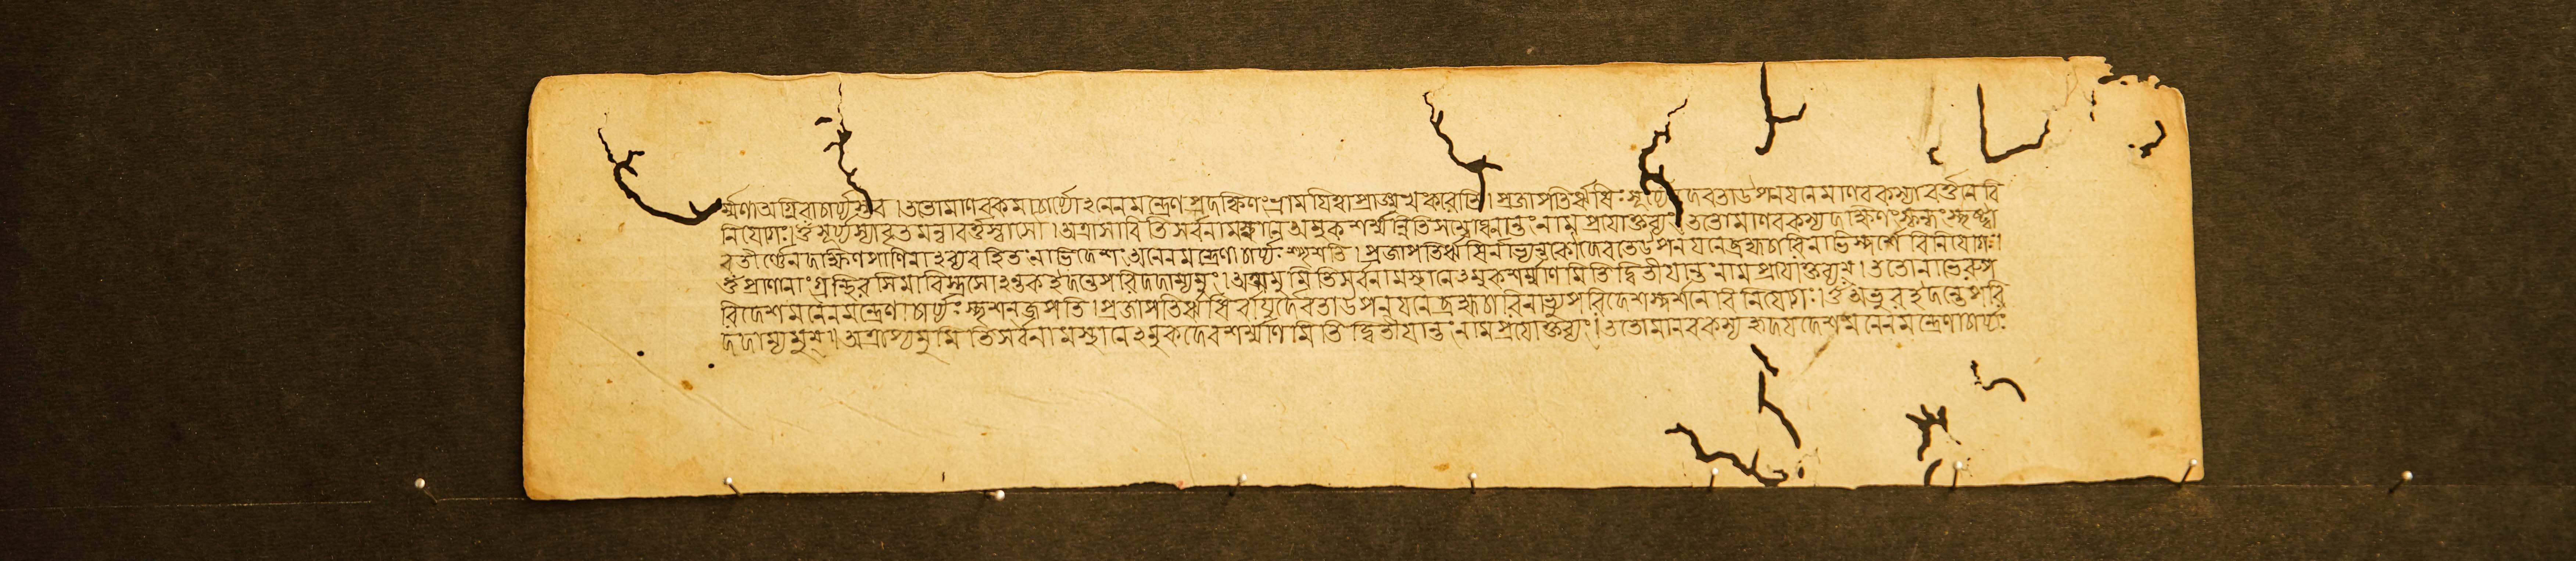 র্ম্মণাঅগ্নিরাচার্য্যস্তব।ততোমাণবকমাচার্য্যোঽনেনমন্ত্রেণপ্রদক্ষিণংভ্রাময়িত্বাপ্রাঙ্মুখংকারয়তি।প্রজাপতিরৃষিঃসূর্য্যোদেবতাউপনয়নেমাণবকস্যাবর্ত্তনেবি
নিয়োগঃ।ওঁসূর্য্যস্যাবৃতমন্বাবর্ত্তস্বাসৌ।অত্রাসাবিতিসর্বনামস্থানেঅমুকশর্ম্মন্নিতিসম্বোধনান্তংনামপ্রযোক্তব্যং।ততোমাণবকস্যদক্ষিণংস্কন্ধংস্পৃষ্ট্বা
বতীর্ণেনদক্ষিণপাণিনাঽব্যবহিতংনাভিদেশংঅনেনমন্ত্রেণাচার্য্যঃস্পৃশতি।প্রজাপতিরৃষির্নাভ্যন্তকৌদেবতেউপনয়নেব্রহ্মচারিনাভিস্পর্শেবিনিয়োগঃ।
ওঁপ্রাণানাংগ্রন্থিরসিমাবিস্রসোঽন্তকইদন্তেপরিদদাম্যমুং।অত্রামুমিতিসর্বনামস্থানেঽমুকশর্ম্মাণমিতিদ্বিতীয়ান্তংনামপ্রযোক্তব্যম্।ততোনাভেরুপ
রিদেশমনেনমন্ত্রেণাচার্য্যঃস্পৃশনজপতি।প্রজাপতিরৃষির্বায়ুর্দেবতাউপনয়নেব্রহ্মচারিনাভ্যুপরিদেশস্পর্শনেবিনিয়োগঃ।ওঁঅভুরইদন্তেপরি
দদাম্যমুম্।অত্রাপ্যমুমিতিসর্বনামস্থানেঽমুকদেবশর্ম্মাণমিতিদ্বিতীয়ান্তংনামপ্রযোক্তব্যং।ততোমানবকস্যহৃদয়দেশমনেনমন্ত্রেণাচার্য্যঃ